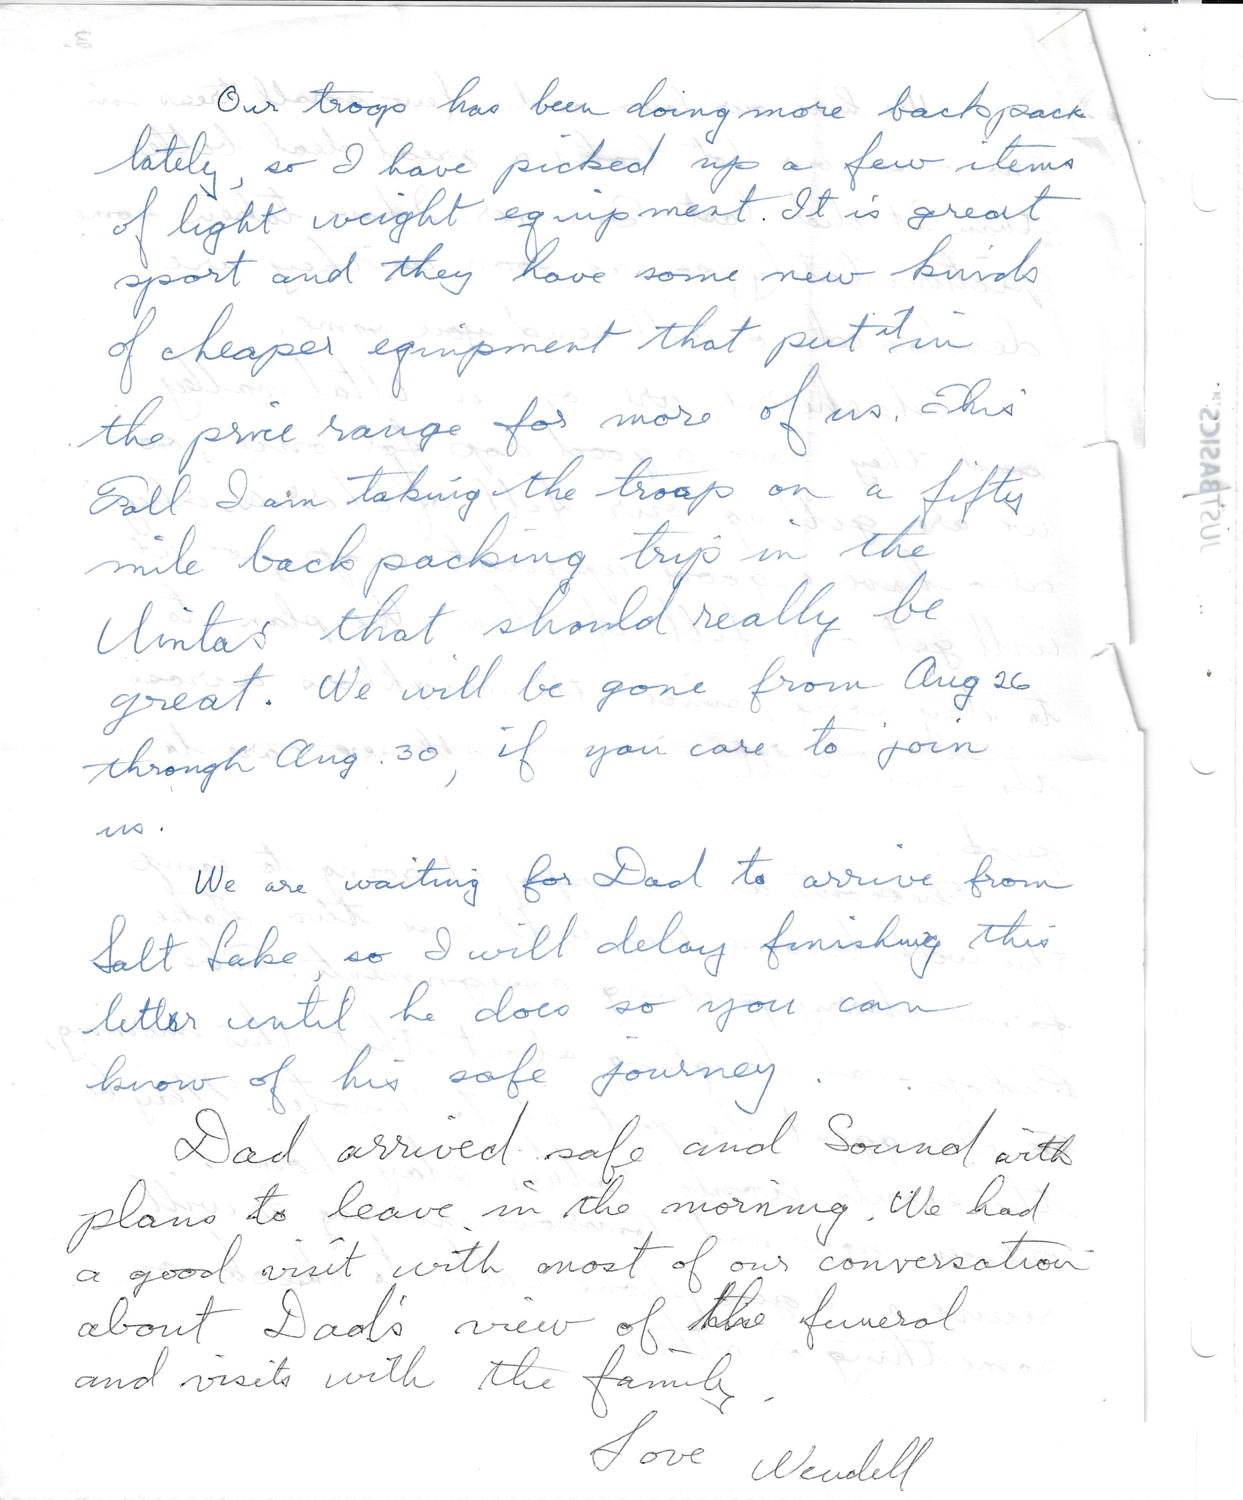 Our troop has been doing more backpack
lately, so I have picked up a few items
of light weight equipment. It is great
sport and they have some new kinds
of cheaper equipment that put it in
the price range for more of us. This
Fall I am taking the troop on a fifty
mile back packing trip in the
Uintas that should really be
great. We will be gone from Aug 26
through Aug. 30, if you care to join
us.
We are waiting for Dad to arrive from
Salt Lake, so I will delay finishing this
letter until he does so you can
know of his safe journey.
Dad arrived safe and Sound with
plans to leave in the morning. We had
a good visit with most of our conversation
about Dad's view of the funeral
and visits with the family.
Love Wendell
JUST BASICS